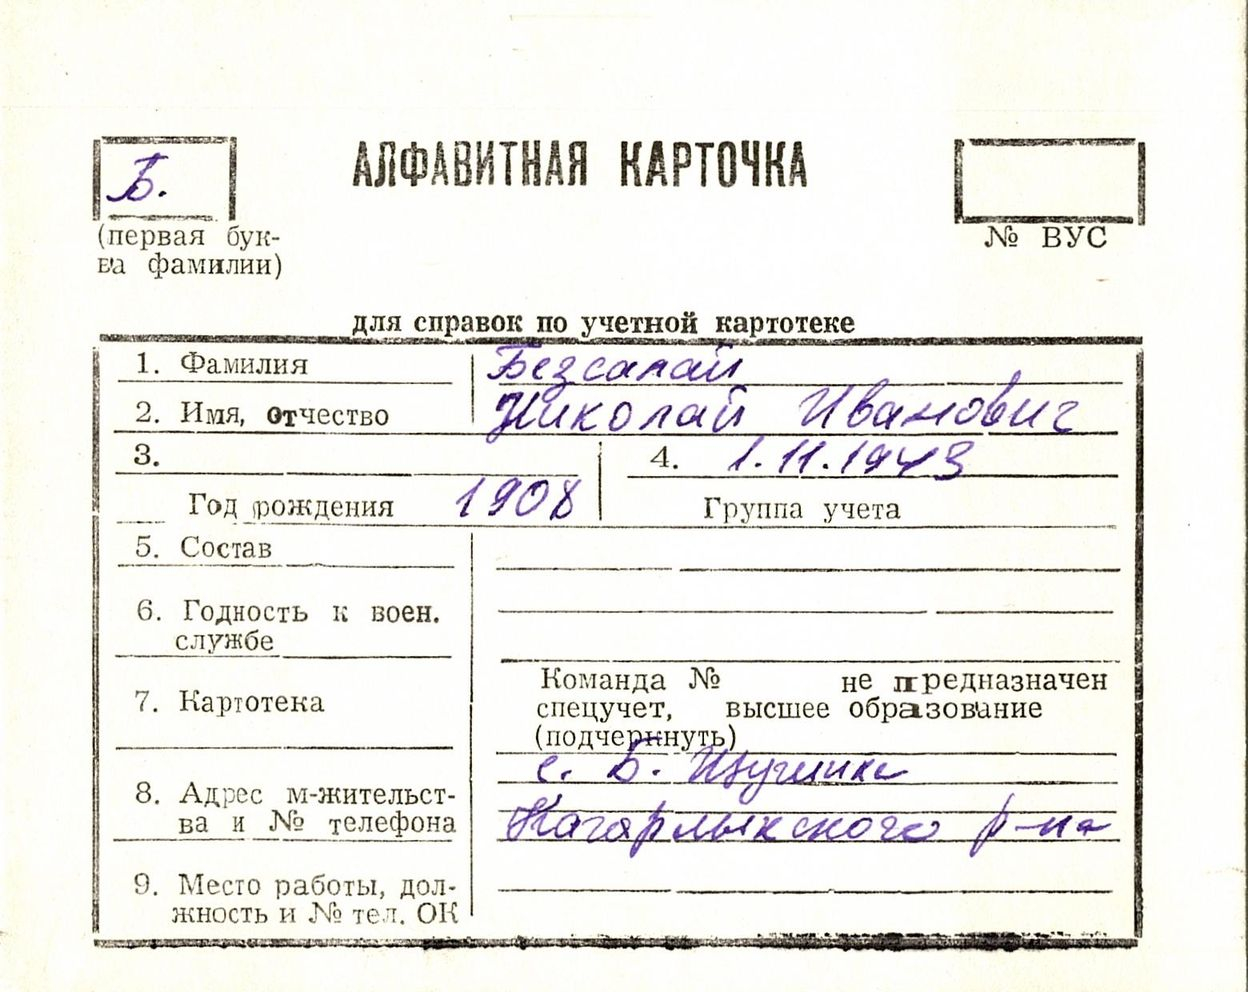 Б.
АЛФАВИТНАЯ КАРТОЧКА
(первая бук-
ва фамилии)
№ ВУС
для справок по учетной картотеке
1. Фамилия Безсалай
2. Имя, отчество Николай Иванович
3.
4. 1.11.1943
Год рождения 1908
Группа учета
5. Состав
6. Годность к воен.
службе
7. Картотека
Команда № не предназначен
спецучет, высшее образование
(подчеркнуть)
с. Б.
8. Адрес м-жительст-
ва и № телефона
Кагарлыкского р-на
9. Место работы, дол-
жность и № тел. ОК